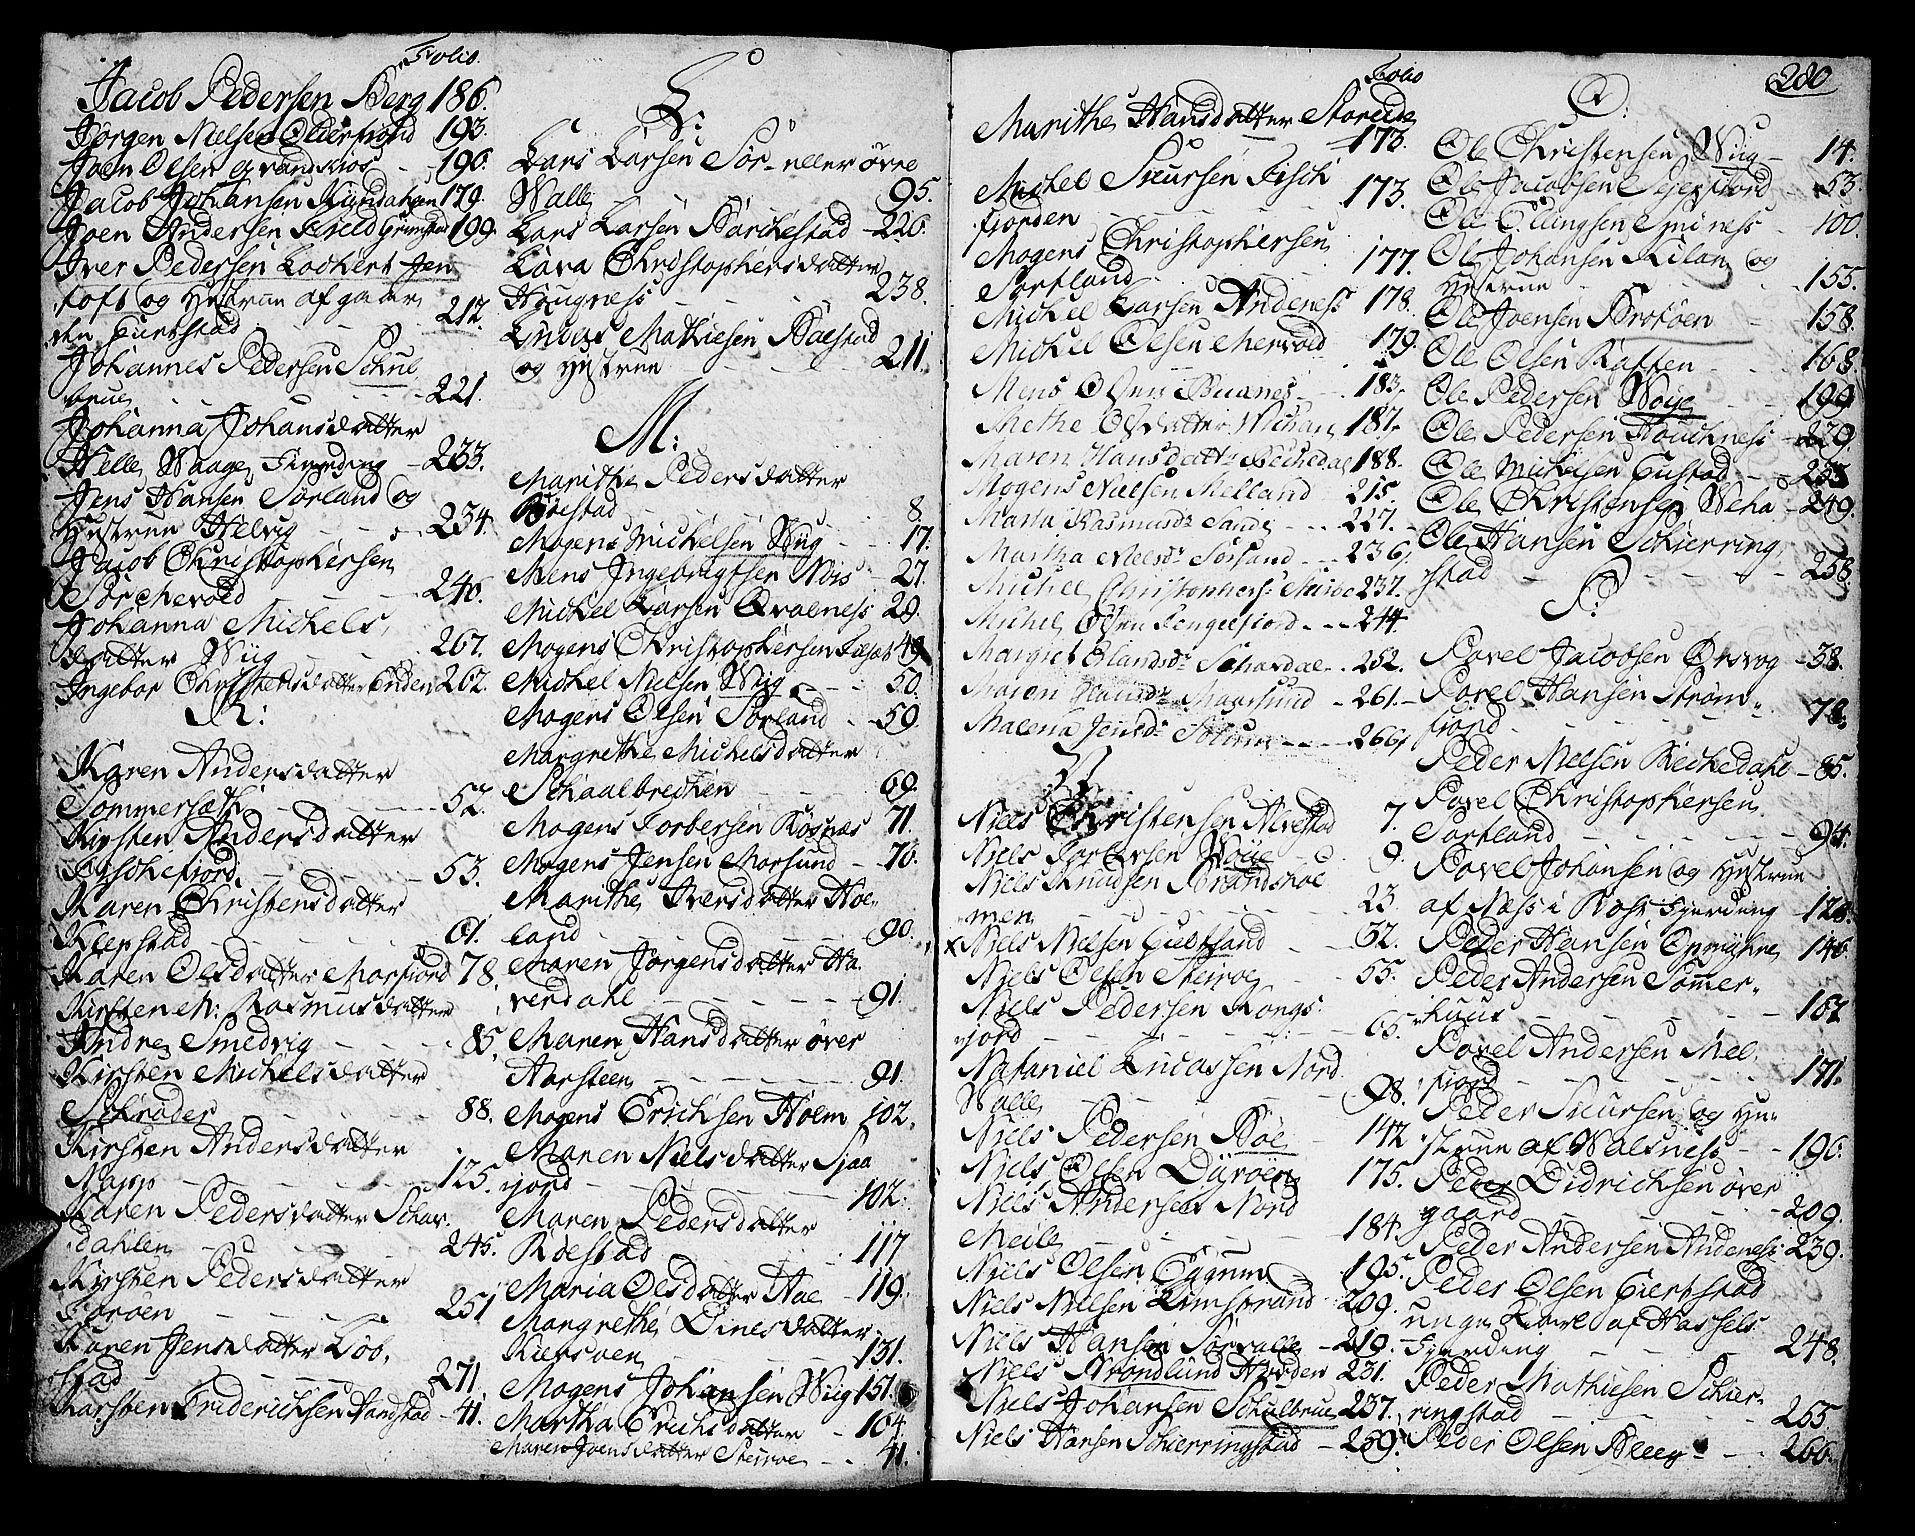 Folio
Jacob Pedersen Berg 186.
Jörgen Nielsen Olderfiord 193.
Joen Olsen 196.
Jacob Johansen 179.
Joen Andersen Field Grimstad 199.
Iver Pedersen Lochert Jen
toft og Hustrue af gaar
den Giertstad 212.
Johannes Pedersen Schul
brue 221.
Johanna Johansdatter
Helle Waage Fierding 233.
Jens Hansen Sörland og
Hustrue Helvig 234.
Jacob Christophersen
Sör 246.
Johanna Michels
datter Wiig 267.
Ingebor Christensdatter Enden 262.
K:
Karen Andersdatter
Sommersæth 52.
Kirsten Andersdatter
53.
Karen Christensdatter
Klepstad 61.
Karen Olsdatter Morfiord 78.
Kirsten M: Rasmusdatter
Indre Smedvig 85.
Kirsten Michelsdatter
Schrader 88.
Kirsten Andersdatter
Napp 125.
Karen Pedersdatter Schar
dahlen 245.
Kirsten Pedersdatter
251
Karen Jensdatter Löb
stad 271.
Karsten Friderichsen Sandstad 41.
L:
Lars Larsen Sör eller övre
Walle 95.
Lars Larsen Barchestad 226.
Lava Christophersdatter
Hougness 238.
Lucas Mathiesen Böestad
og Hustrue 211.
M:
Marithe Pedersdatter
Böestad 8.
Mogens Michelsen Wiig 17.
Mens Ingebrigtsen 27.
Michel Larsen Qvalness 29.
Mogens Christophersen 49
Michel Nielsen Wiig 50.
Mogens Olsen Sörland 59.
Margrethe Michelsdatter
Schaalbrechen 69.
Mogens Torbersen 71.
Mogens Jensen Morsund 76.
Marithe Iversdatter Hoe
land 90.
Maren Jörgensdatter Ha
verdahl 91.
Maren Hansdatter över
Aarsteen 91.
Mogens Erichsen Holm 102.
Maren Nielsdatter Sjaa
fjord 102.
Maren Pedersdatter
Röestad 117
Maria Olsdatter 119.
Margrethe Dinesdatter
131.
Mogens Johansen Wiig 151.
Martha Erichsdatter 164
Maren Joensdatter Steiroe 41.
Folio
Marithe Hansdatter Storeide
173.
Michel Siursen Fisch
fjorden 173.
Mogens Christophersen
Sortland 177.
Michel Larsen Andeness 178.
Michel Olsen 179.
Mens Olsen 183.
Methe Olsdatter 187.
Maren Hansdatter 188.
Mogens Nielsen Melland 215.
Marta Rasmusdr Sande 227.
Martha Nielsdr Sörland 236.
Michel Christophers: 237.
Michel Olsen Tengelfiord 244.
Margret 252.
Maren 261.
Malena Jensdr 266.
N
Niels Christensen Alvestad 7.
Niels Torbersen 9.
Niels Knudsen Brandshol
men 23.
x Niels Nielsen 32.
Niels Olsen Steiroe 55.
Niels Pedersen Kongs
fjord 65.
Nataniel Lucassen Nord
Walle 98.
Niels Pedersen Böe 142
Niels Olsen Dyröen 175.
Niels Andersen Nord
Meile 184.
Niels Olsen Eggum 195.
Niels Nielsen Limstrand 209.
Niels Hansen 219.
Niels 231.
Niels Johansen Schulbrue 237.
Niels Hansen Schierringstad 259.
280
O:
Ole Christensen Wiig 14.
Ole Jacobsen 53.
Ole Ellingsen 100.
Ole Johansen Kilan og
Hustrue 155.
Ole Joensen Brotöen 158.
Ole Olsen Raften 168
Ole Pedersen 199
Ole Pedersen Houchness 229.
Ole Michelsen 238
Ole Christensen 249.
Ole Hansen Schierring
stad 258.
P:
Povel Jacobsen Örsvog 38.
Povel Hansen Ström
fjord 78.
Peder Nielsen Bechedahl 85.
Povel Christophersen
Sortland 94.
Povel Johansen og Hustrue
af Næss i Röst Fierding 128.
Peder Hansen 146.
Peder Andersen Sommer
huus 167
Povel Andersen Mel
fjord 171.
Peder Siursen og Hu
strue af Walsness 196.
Peder Didrichsen över
gaard 209.
Peder Andersen Andeness 239.
Peder Olsen Giertstad
unge Karl af Hassels
Fierding 248.
Peder Mathiesen Schier
ringstad 255
Peder Olsen 266.